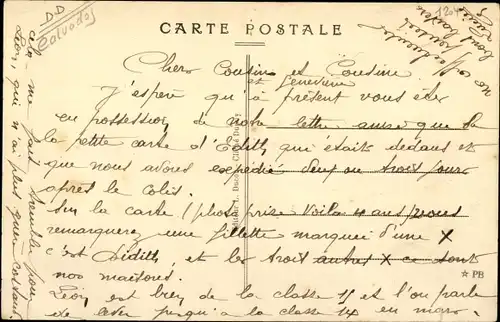 DD
Calvados
CARTE POSTALE
Chers Cousins et Cousine
et Geneviève
J'espère qu'à présent vous êtes
en possession de notre lettre ainsi que la
petite carte d'Edith qui était dedans et
que nous avons expédié deux ou trois jours
après le colis.
Sur la carte (photo prise voilà 4 ans) vous
remarquerez une fillette marquée d'une X
c'est Edith, et les trois autres X ce sont
nos maisons.
Léon est bien de la classe 15 et l'on parle
de lever jusqu'à la classe 14 en mars
cela me fait trembler pour
Léon, qui n'ai plus guère costaud
PB